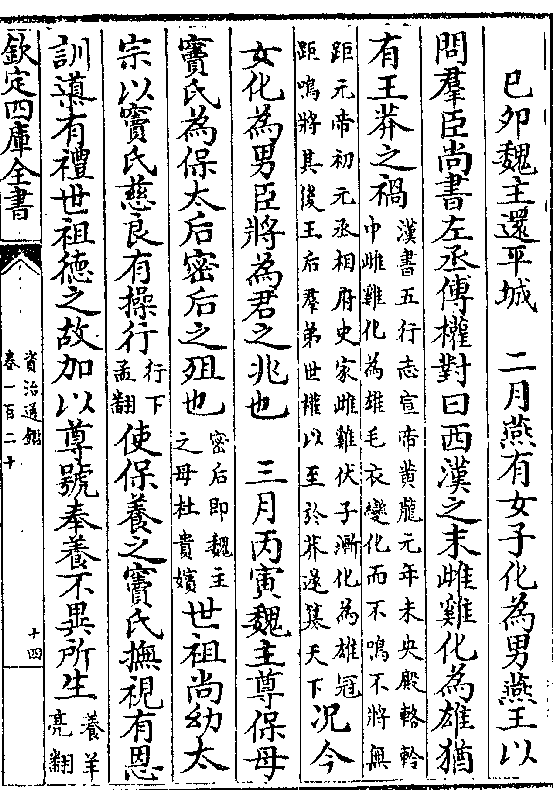 己卯魏主還平城　二月燕有女子化為男燕王以
問羣臣尚書左丞傅權對曰西漢之末雌雞化為雄猶
有王莽之禍
漢書五行志宣帝黄龍元年未央殿輅軨
中雌雞化為雄毛衣變化而不鳴不將無
距元帝初元丞相府史家雌雞伏子漸化為雄冠
距鳴將其後王后羣弟世權以至於莽遂簒天下
况今
女化為男臣將為君之兆也　三月丙寅魏主尊保母
竇氏為保太后密后之殂也
密后即魏主
之母杜貴嬪
世祖尚幼太
宗以竇氏慈良有操行
行下
孟翻
使保養之竇氏撫視有恩
訓導有禮世祖德之故加以尊號奉養不異所生
養羊
亮翻
欽定四庫全書
資治通鑑
卷一百二十
十四